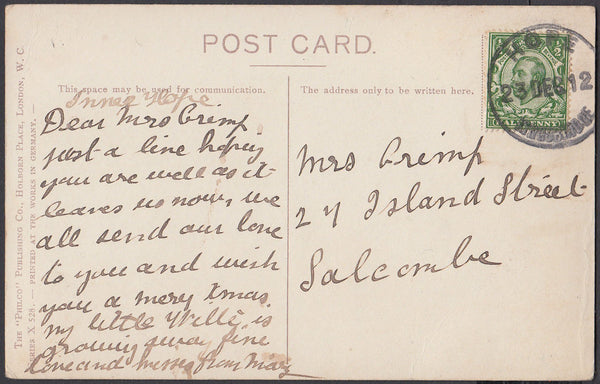 POST CARD.
This space may be used for communication.
The address only to be written here.
Inner Hope
Dear Mrs Crimp
just a line hoping
you are well as it
leaves us now, we
all send our love
to you and wish
you a mery Xmas
my little Willi is
growing away fine
love and kisses from Mary
Mrs Crimp
27 Island Street
Salcombe
HOPE
23 DE 12
KINGSBRIDGE
HALFPENNY
The "Philco" Publishing Co., Holborn Place, London, W. C.
Series X 528. — Printed at the Works in Germany. —